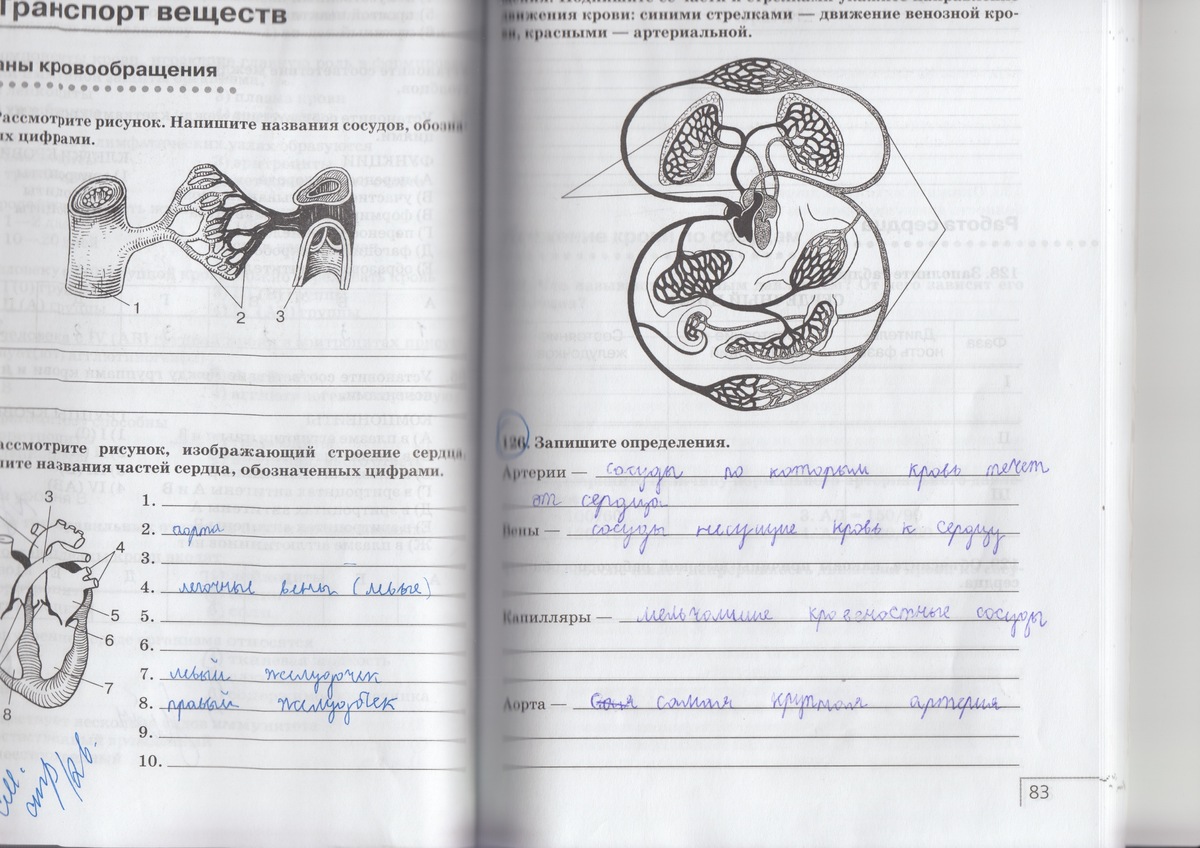 Транспорт веществ
аны кровообращения
Рассмотрите рисунок. Напишите названия сосудов, обозна
ых цифрами.
1
2
3
ассмотрите рисунок, изображающий строение сердца
ите названия частей сердца, обозначенных цифрами.
3
4
5
6
7
8
1.
2. аорта
3.
4. легочные вены (левые)
5.
6.
7. левый желудочек
8. правый желудочек
9.
10.
см.
стр
движения крови: синими стрелками — движение венозной кро-
ви, красными — артериальной.
126. Запишите определения.
Артерии — сосуды по которым кровь течет
от сердца
Вены — сосуды несущие кровь к сердцу
Капилляры — мельчайшие кровеностные сосуды
Аорта — самая крупная артерия
83